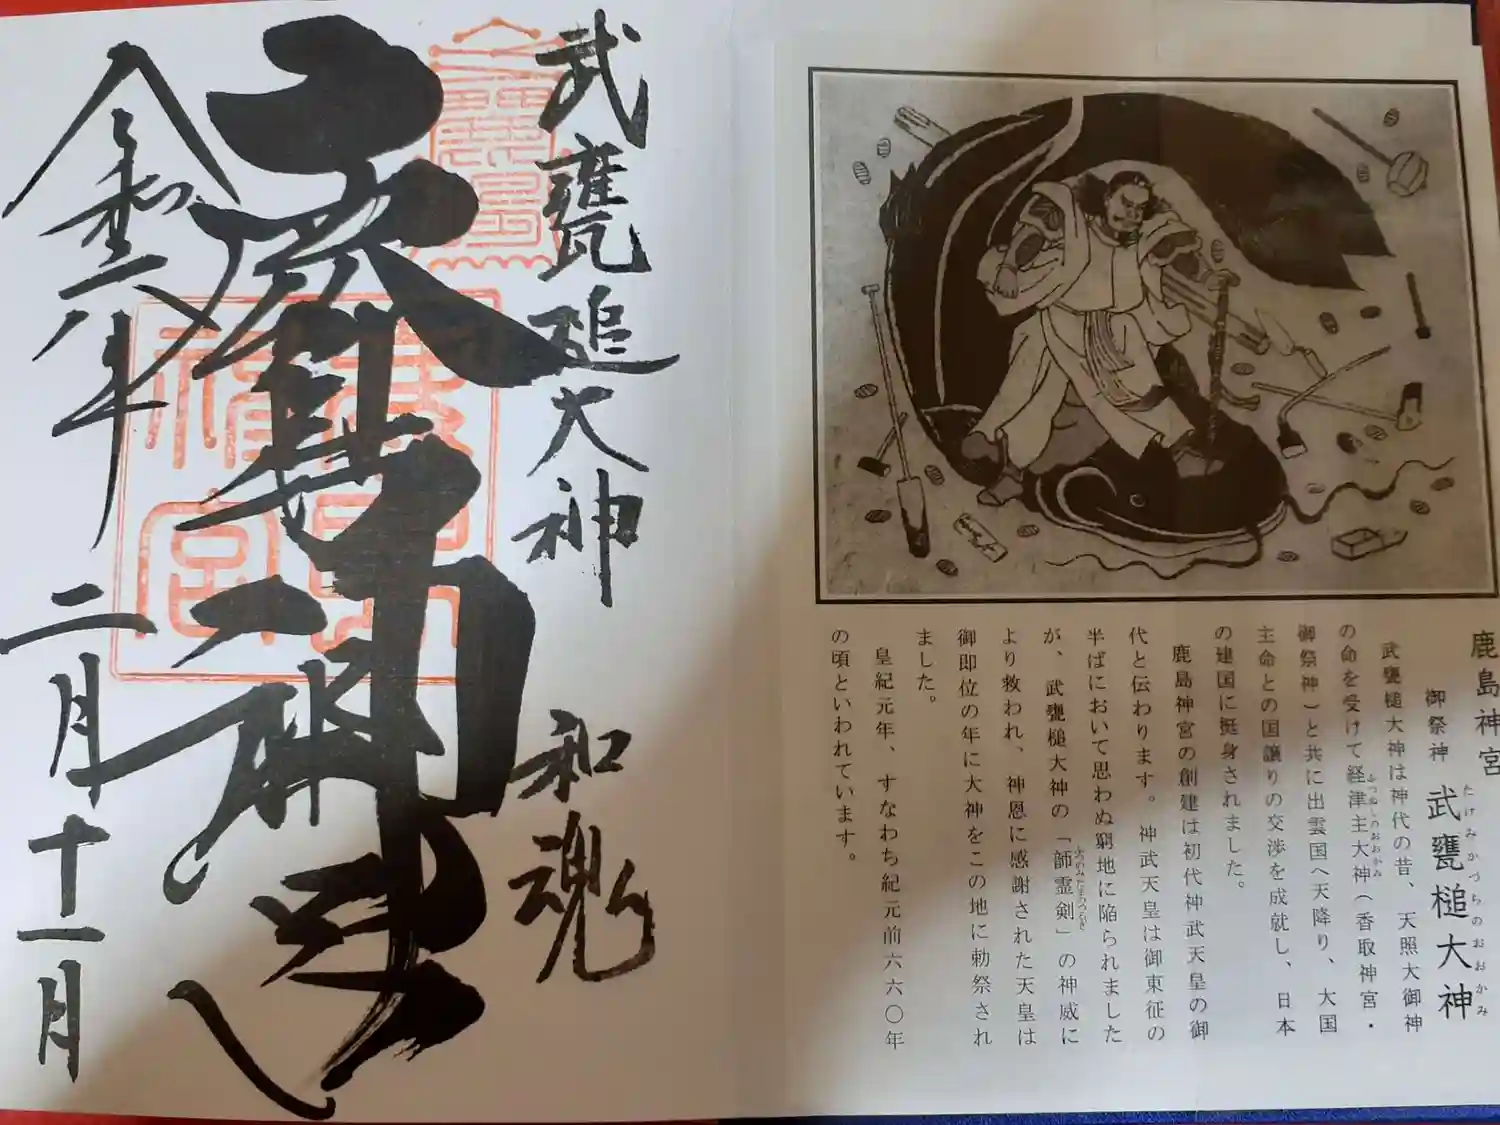 鹿島神宮
たけみかづちのおおかみ
御祭神 武甕槌大神
武甕槌大神は神代の昔、天照大御神
ふつぬしのおおかみ
の命を受けて経津主大神(香取神宮・
御祭神)と共に出雲国へ天降り、大国
主命との国譲りの交渉を成就し、日本
の建国に挺身されました。
鹿島神宮の創建は初代神武天皇の御
代と伝わります。神武天皇は御東征の
半ばにおいて思わぬ窮地に陥られました
ふつのみたまのつるぎ
が、武甕槌大神の「韴霊剣」の神威に
より救われ、神恩に感謝された天皇は
御即位の年に大神をこの地に勅祭され
ました。
皇紀元年、すなわち紀元前六六〇年
の頃といわれています。
武甕槌大神 和魂
令和六年 二月十一日